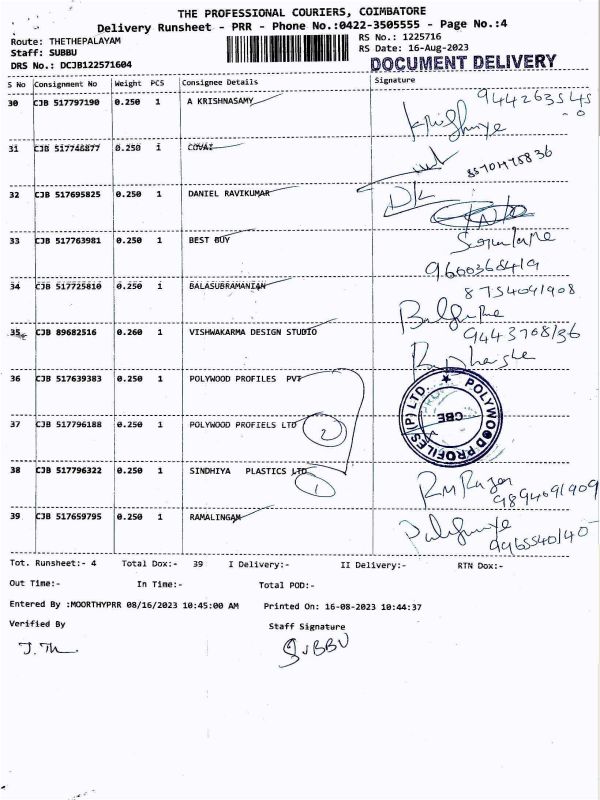 THE PROFESSIONAL COURIERS, COIMBATORE
Delivery Runsheet - PRR - Phone No.:0422-3505555 - Page No.:4
Route: THETHEPALAYAM
RS No.: 1225716
Staff: SUBBU
RS Date: 16-Aug-2023
DRS No.: DCJB122571604
DOCUMENT DELIVERY
S No Consignment No Weight PCS Consignee Details Signature
30 CJB 517797190 0.250 1 A KRISHNASAMY
944263545
31 CJB 517746877 0.250 1 COVAI
32 CJB 517695825 0.250 1 DANIEL RAVIKUMAR
33 CJB 517763981 0.250 1 BEST BUY
9600368419
34 CJB 517725810 0.250 1 BALASUBRAMANIAN
8754091908
35 CJB 89682516 0.260 1 VISHWAKARMA DESIGN STUDIO
9443708136
36 CJB 517639383 0.250 1 POLYWOOD PROFILES PVT
POLYWOOD PROFILES (P) LTD.
CBE
37 CJB 517796188 0.250 1 POLYWOOD PROFIELS LTD
2
38 CJB 517796322 0.250 1 SINDHIYA PLASTICS LTD
1
39 CJB 517659795 0.250 1 RAMALINGAM
Tot. Runsheet:- 4 Total Dox:- 39 I Delivery:- II Delivery:- RTN Dox:-
Out Time:- In Time:- Total POD:-
Entered By :MOORTHYPRR 08/16/2023 10:45:00 AM Printed On: 16-08-2023 10:44:37
Verified By Staff Signature
SUBBU